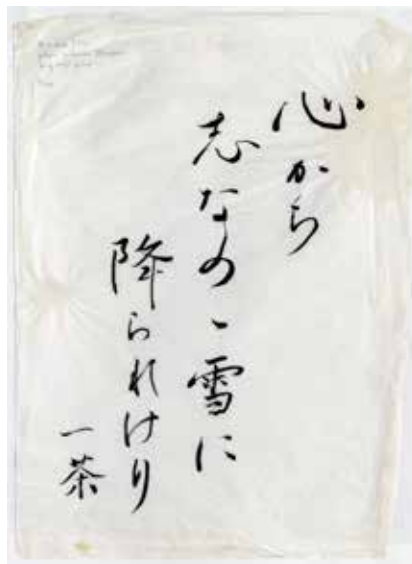 心から
志なのゝ雪に
降られけり
一茶